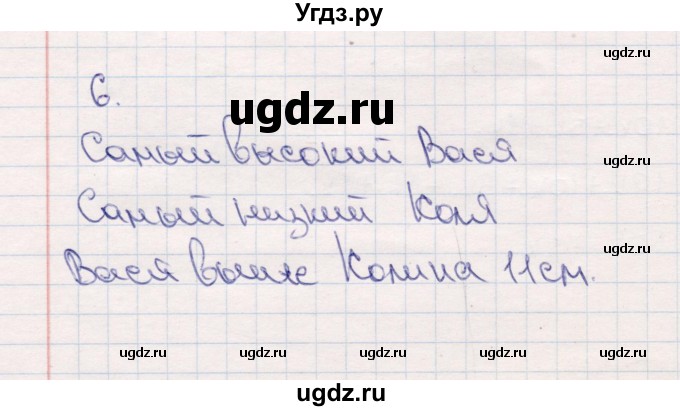 Угдз.ру
ugdz.ru
6.
ugdz.ru
Самый высокий Вася
ugdz.ru
Самый низкий Коля
ugdz.ru
Вася выше Колина 11 см.
ugdz.ru ugdz.ru ugdz.ru ugdz.ru ugdz.ru
ugdz.ru